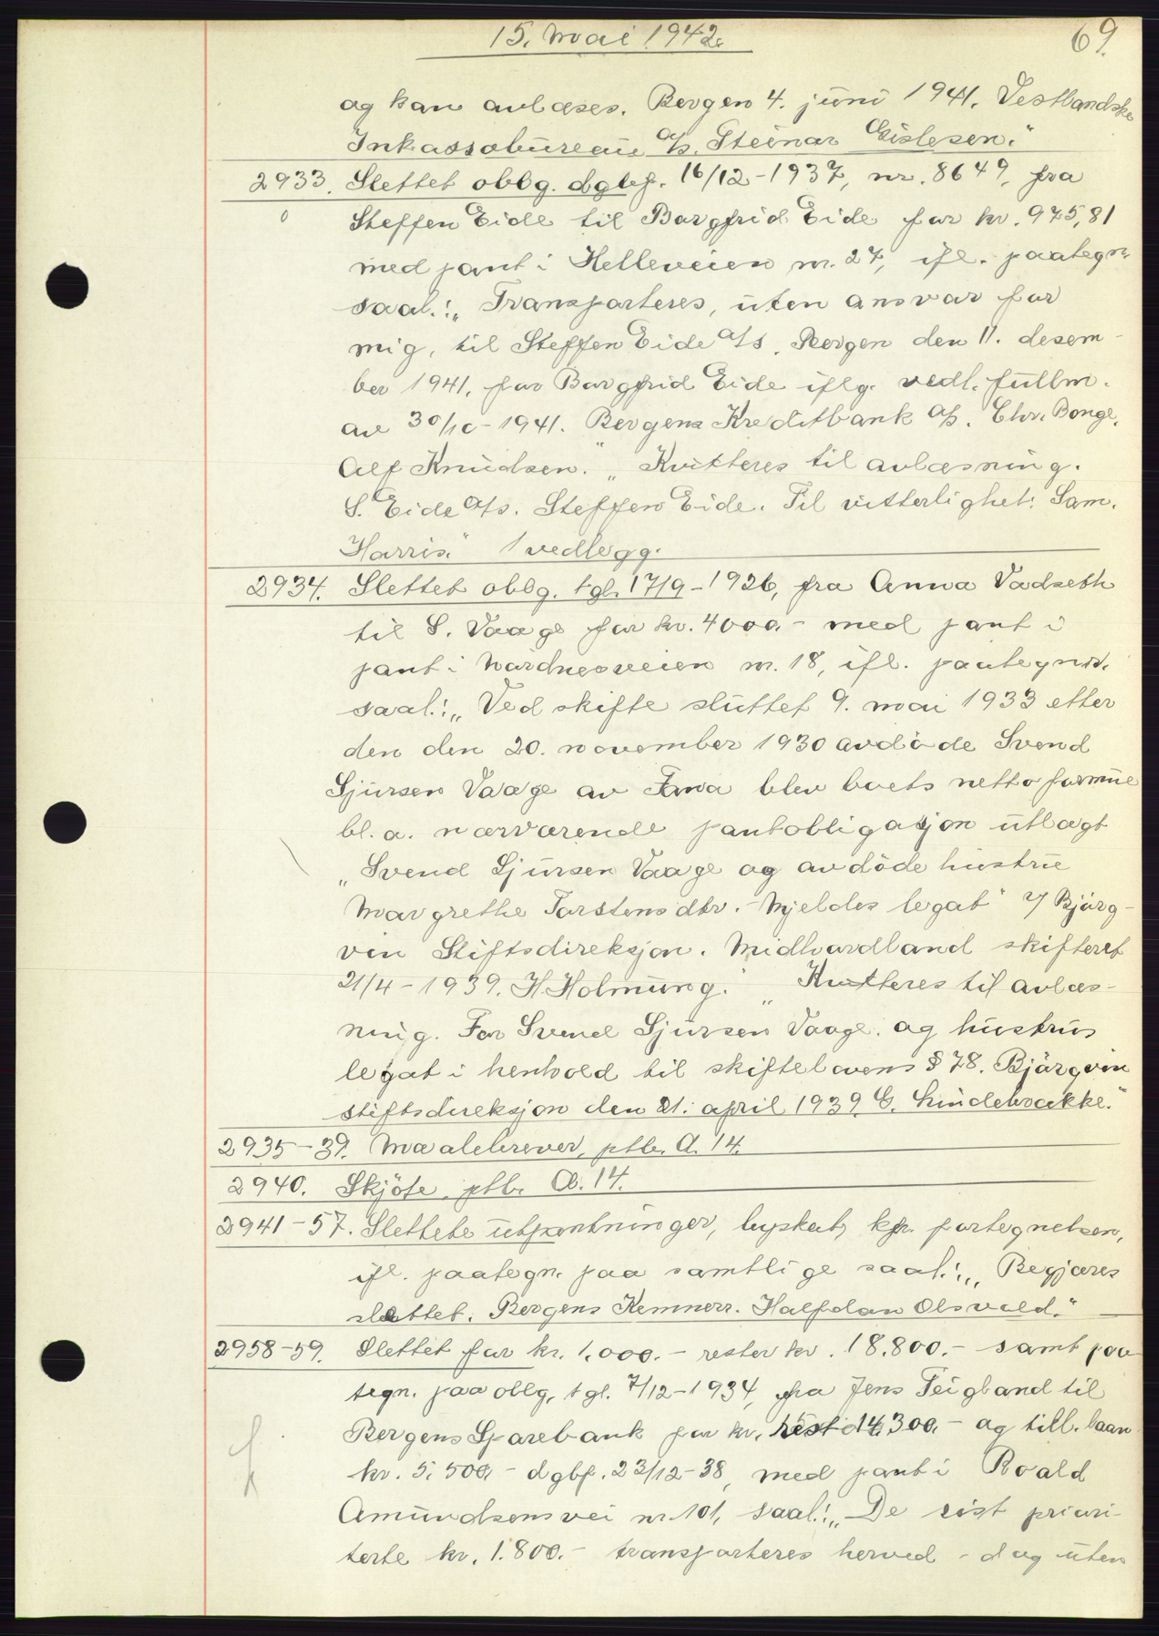 15. mai 1942.
69.
og kan avlæses. Bergen 4. juni 1941. Vestlandske
Inkassobureau A/S. Steinar Gislesen."
2933. Slettet oblg. dgbf. 16/12-1937, nr. 8649, fra
Steffen Eide til Borgfrid Eide for kr. 975,81
med pant i Helleveien nr. 27, ifl. paategn.
saal.: „Transporteres, uten ansvar for
mig, til Steffen Eide A/S. Bergen den 11. desem-
ber 1941. for Borgfrid Eide iflg. vedl. fullm.
av 30/10-1941. Bergens Kreditbank A/S. Chr. Bonge.
Alf Knudsen." „Kvitteres til avlæsning.
S. Eide A/S. Steffen Eide. Til vitterlighet: Sam.
Harris." 1 vedlegg.
2934. Slettet oblg. tgl. 17/9-1926, fra Anna Vadseth
til S. Vaage for kr. 4000.- med pant i
pant i Nordnesveien nr. 18, ifl. paategn.
saal.: „Ved skifte sluttet 9. mai 1933 etter
den den 20. november 1930 avdöde Svend
Sjursen Vaage av Fana blev boets nettoformue
bl. a. nærværende pantobligasjon utlagt
„Svend Sjursen Vaage og avdöde hustru
Margrethe Torstensdtr. Mjeldes legat" v/ Bjørg-
vin Stiftsdireksjon. Midhordland skifterett
21/4-1939. H. Holmung." „Kvitteres til avlæs-
ning. For Svend Sjursen Vaage. og hustrus
legat i henhold til skiftelovens § 78. Bjørgvin
stiftsdireksjon den 21. april 1939. C. Lindebrække."
2935-39. Maalebrever, ptb. A. 14.
2940. Skjöte, ptb. A. 14.
2941-57. Slettete utpantninger, byskatt, kfr. fortegnelsen,
ifl. paategn. paa samtlige saal.: „Begjæres
slettet. Bergens Kemner. Halfdan Olsvold."
2958-59. Slettet for kr. 1.000.- rester kr. 18.800.- samt paa-
tegn. paa oblg. tgl. 7/12-1934, fra Jens Teigland til
Bergens Sparebank for kr. rest 14.300.- og till. laan
kr. 5.500.- dgbf. 23/12-38, med pant i Roald
Amundsens vei nr. 101, saal.: „De sist priori-
terte kr. 1.800.- transporteres herved - dog uten